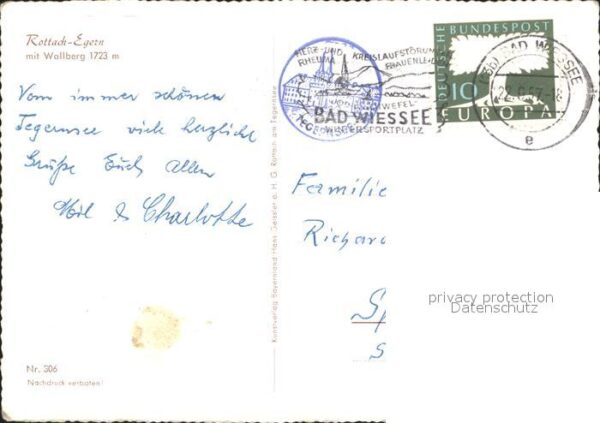 Rottach-Egern
mit Wallberg 1723 m
Vom immer schönen
Tegernsee viele herzliche
Grüße Euch allen
& Charlotte
Nr. 306
Nachdruck verboten!
Kunstverlag Bayernland Hans Geissler o. H. G. Rottach am Tegernsee
HERZ- UND
RHEUMA
KREISLAUFSTÖRUNG
FRAUENLEID
BAD WIESSEE
WINTERSPORTPLATZ
DEUTSCHE BUNDESPOST
10
EUROPA
BAD WIESSEE
e
Familie
Richard
privacy protection
Datenschutz